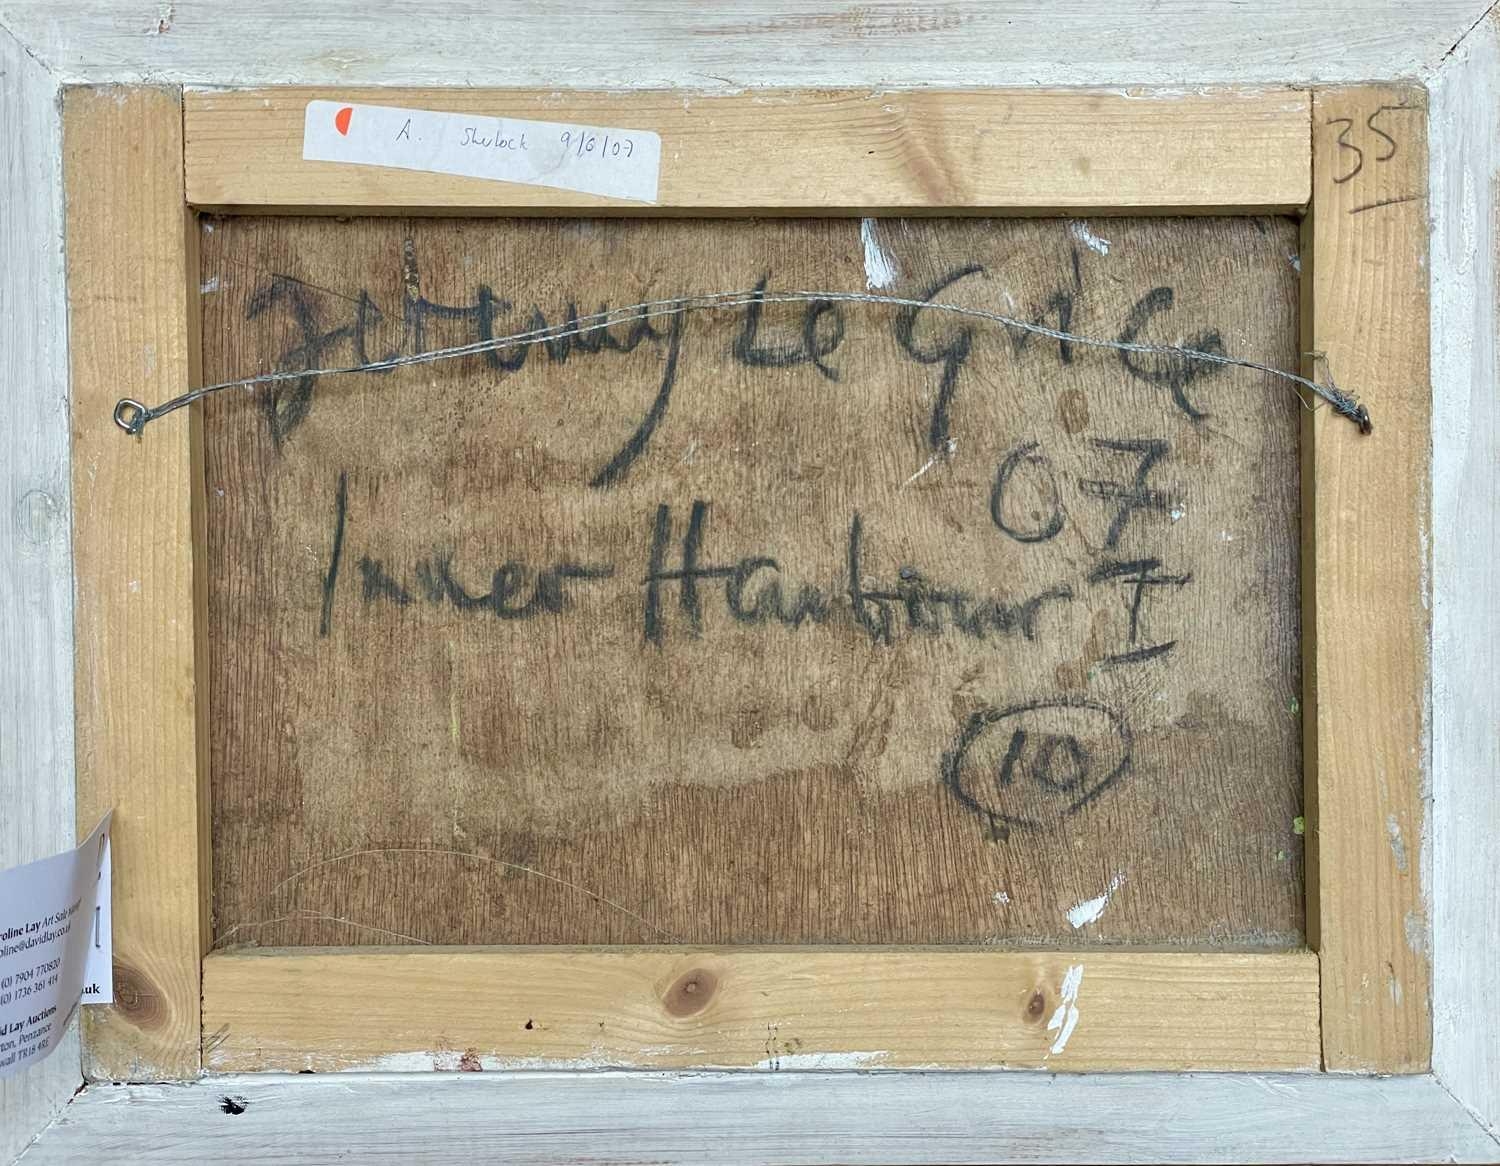 A. Sherlock 9/6/07
35
Jeremy Le Grice
07
Inner Harbour I
10
roline Lay Art Sale
oline@davidlay.co.uk
(0) 7904 770820
(0) 1736 361 414
.uk
id Lay Auctions
rton, Penzance
wall TR18 4RE